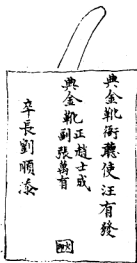 典金靴衙聽使汪有發
典金靴正趙士成
典金靴副張萬有
卒長劉順添